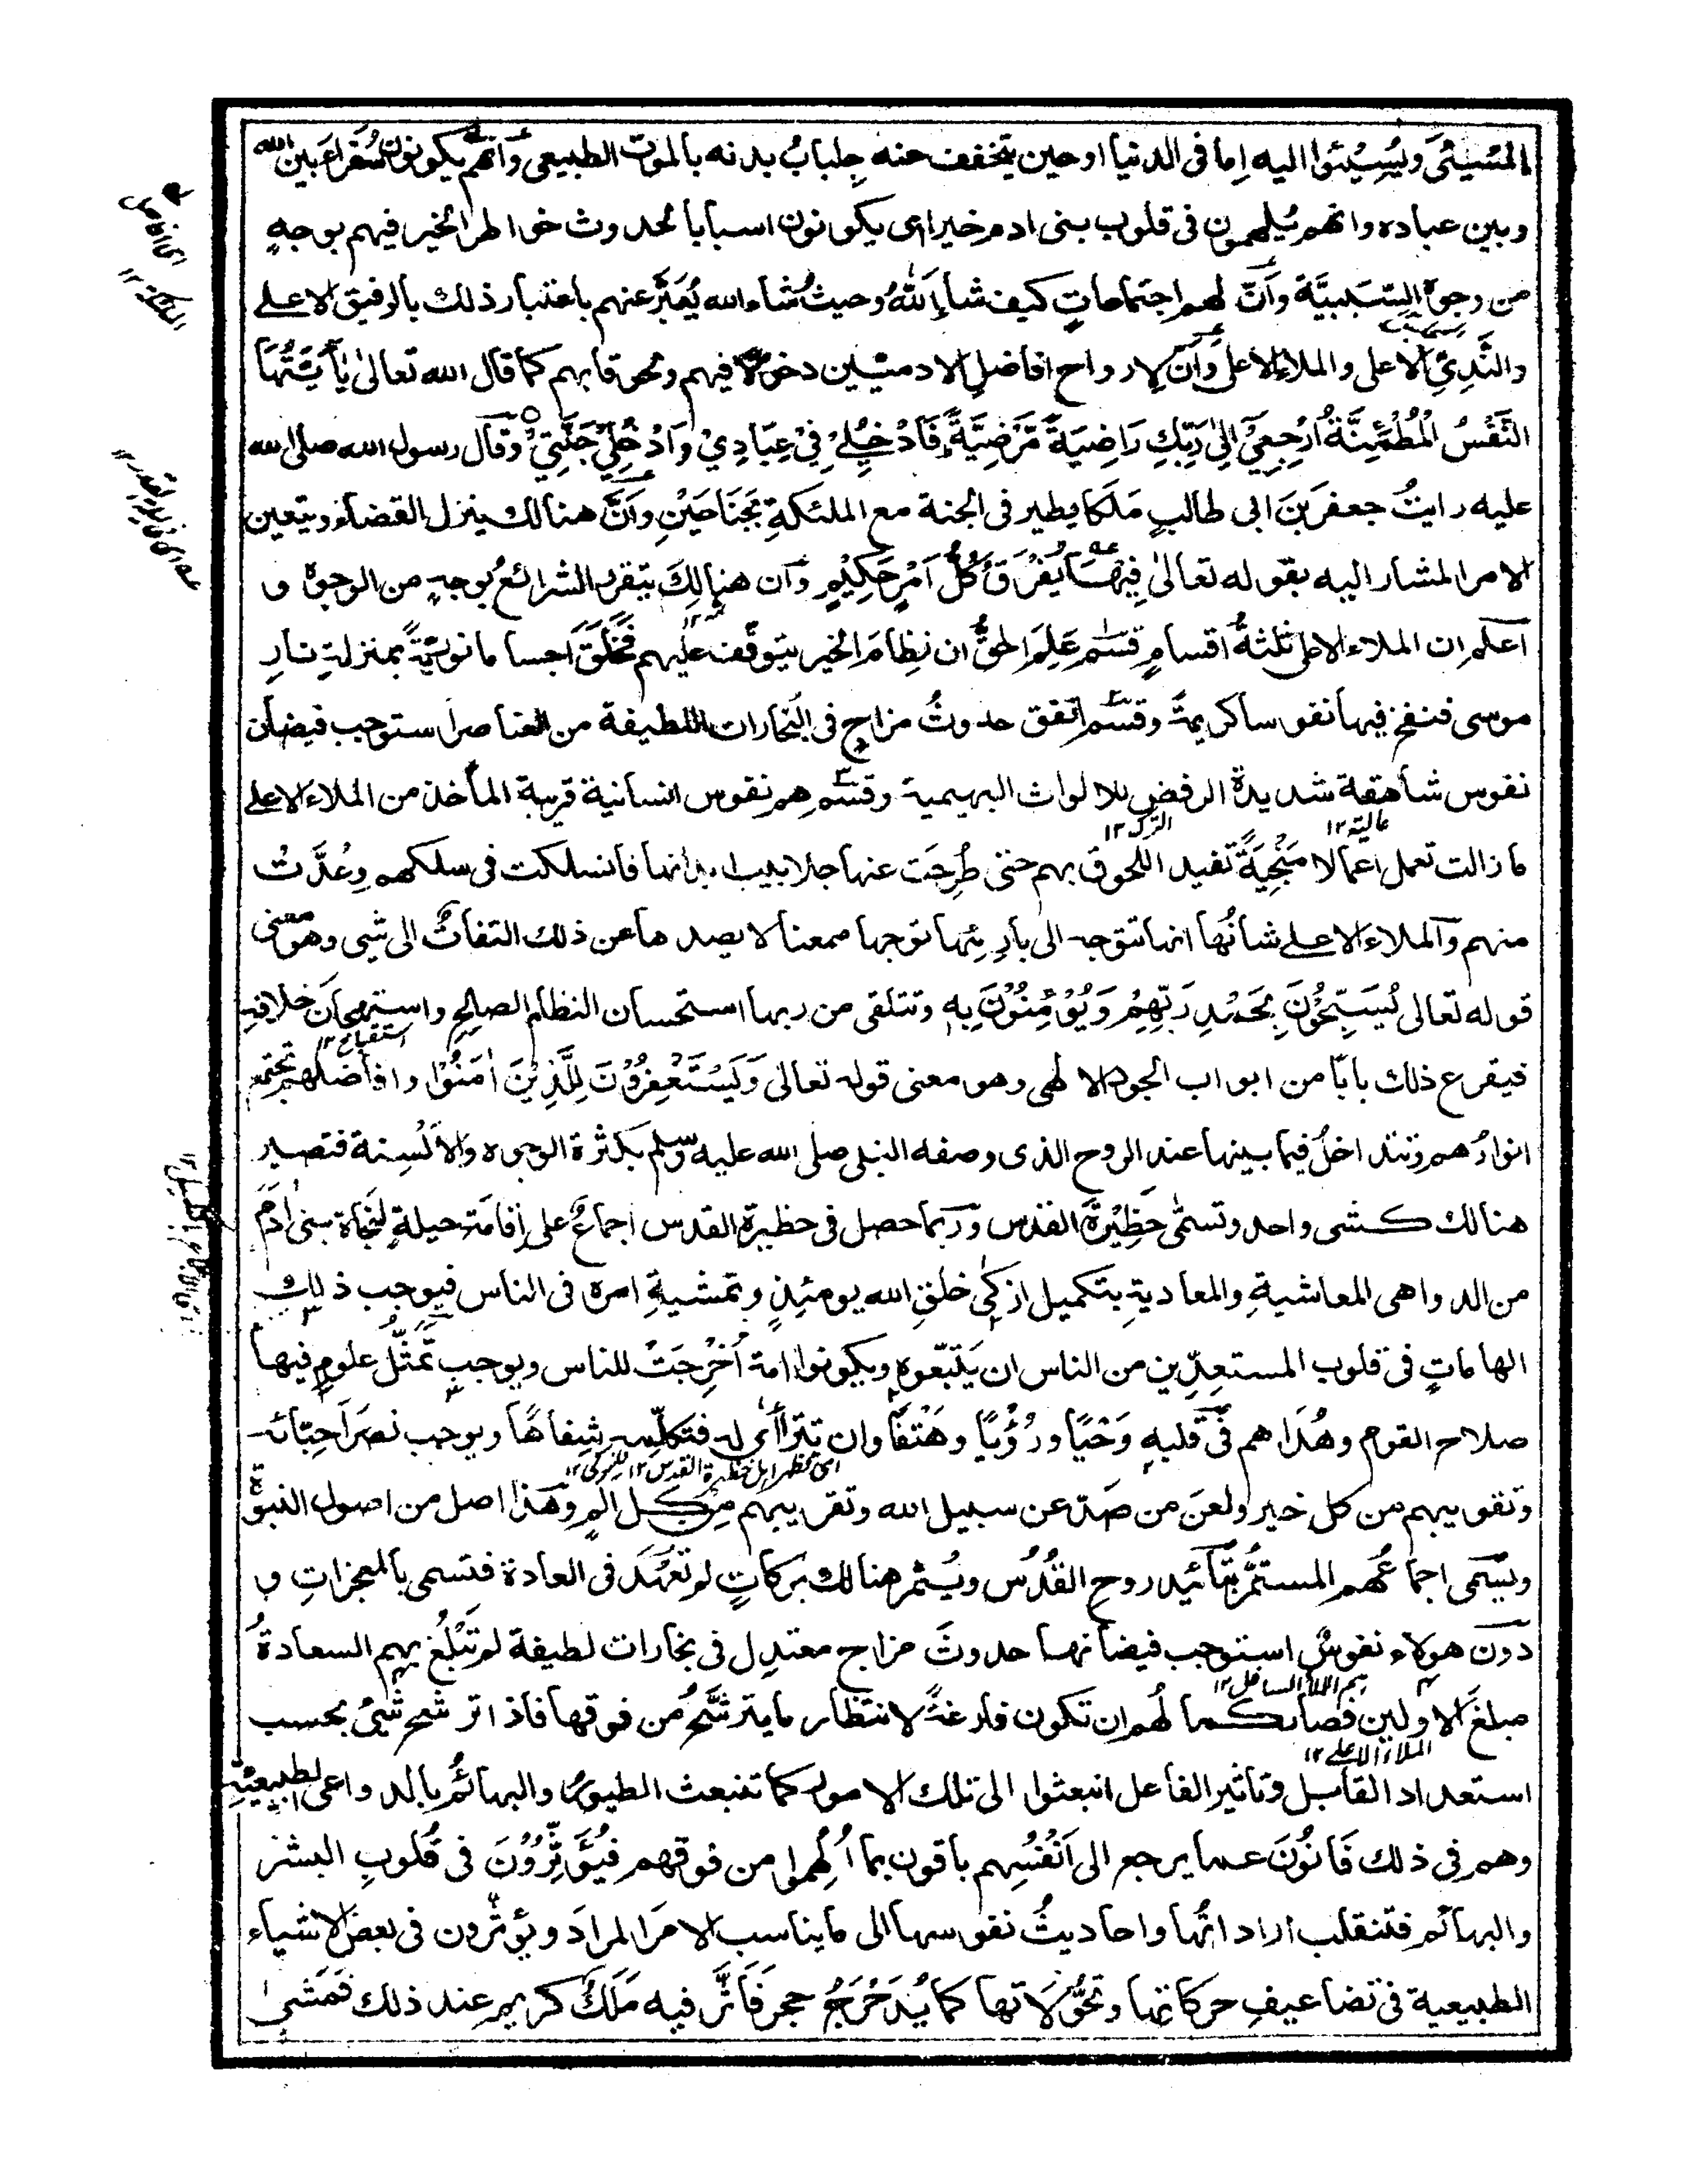 المُسِيْئَ ويُسِيْئوا اليه اِما فى الدنيا او حين يتخفف عنه جِلبابُ بدنه بالموت الطبيعى وَانّهم يكونون سُفَراءَ بين الله
وبين عباده وانهم يُلهمون فى قلوب بنى ادم خيرا اى يكونون اسبابا لحدوث خواطر الخير فيهم بوجهٍ
من وجوه السَّبَبيَّة وَاَنّ لهم اجتماعاتٍ كيف شاء اللهُ وحيثُ شاء الله يُعَبَّرُ عنهم باعتبار ذلك بالرفيق الاعلے
والنَّدِىِّ الاعلى والملاءِ الاعلى وَاَنّ لارواح افاضلِ الادميّين دخولًا فيهم ولحوقا بهم كما قال الله تعالىٰ يٰاَيَّتُهَا
النَّفْسُ الْمُطْمَئِنَّةُ ارْجِعِىْٓ اِلىٰ رَبِّكِ رَاضِيَةً مَّرْضِيَّةً فَادْخُلِےْ فِىْ عِبَادِيْ وَادْخُلِىْ جَنَّتِيْ وقال رسول الله صلى الله
عليه رايتُ جعفرَ بنَ ابى طالبٍ مَلَكا يطير فى الجنة مع الملئكةِ بجَنَاحَيْنِ وَاَنَّ هنالك ينزل القضاء ويتعين
الامر المشار اليه بقوله تعالىٰ فِيْهَا يُفْرَقُ كُلُّ اَمْرٍ حَكِيْمٍ وَان هنالِكَ يتقرر الشرائعُ بوجهٍ من الوجوه و
اعلم ان الملاء الاعلى ثلٰثةُ اقسامٍ قسمٌ عَلِمَ الحقُّ ان نظامَ الخير يتوقف عليهم فخَلَقَ اجساما نوريّةً بمنزلةِ نارِ
موسى فنفخ فيها نفوسا كريمةً وقسمٌ اتفق حدوثُ مزاجٍ فى البُخارات اللطيفة من العناصر استوجب فيضان
نفوس شاهقة شديدة الرفضِ للالواث البهيمية وقسمٌ هم نفوس انسانية قريبة المأخذ من الملاء الاعلے
عالية ١٢ الترك ١٢
ما زالت تعمل اعمالا مُنْجِيَةً تفيد اللحوق بهم حتى طُرِحَت عنها جلابيب ابدانها فانسلكت فى سلكهم وعُدَّتْ
منهم وَالملاء الاعلے شانُها انها تتوجه الى بارِئها توجها ممعنا لا يصدها عن ذلك التفاتٌ الى شىء وهو معنى
قوله تعالى يُسَبِّحُوْنَ بِحَمْدِ رَبِّهِمْ وَيُؤْمِنُوْنَ بِهٖ وتتلقى من ربها استحسان النظام الصالح واستهجان خلافه
استقباح ١٢
فيقرع ذلك بابًا من ابواب الجود الالهى وهو معنى قوله تعالى وَيَسْتَغْفِرُوْنَ لِلَّذِيْنَ اٰمَنُوْا وافاضلهم تجتمع
انوارُهم وتتداخلُ فيما بينها عند الروح الذى وصفه النبى صلى الله عليه وسلم بكثرة الوجوه والاَلْسِنة فتصير
هنالك كشىء واحد وتسمّى حَظِيْرَةَ القدس وَربما حصل فى حظيرة القدس اجماعٌ على اِقامَة حيلةٍ لنجاة بنى اٰدَم
من الدواهى المعاشيةِ والمعاديةِ بتكميل ازكٰى خلقِ الله يومئذٍ وتمشيةِ امره فى الناس فيوجب ذلك
الهاماتٍ فى قلوب المستعِدِّين من الناس ان يَتّبعُوه ويكونوا امة اُخْرِجَتْ للناس ويوجب تمثّلُ علومٍ فيها
صلاح القوم وهُدَاهم فى قلبه وَحْيًا ورُؤْيًا وهَتْفًا وان تتراأى له فتكلّمه شِفاهًا ويوجب نصرَ احِبّائه
اى تظهر اهل حظيرة القدس ١٢ للزكى ١٢
وتقويبهم من كل خير ولعنَ من صَدّ عن سبيل الله وتقريبهم من كل المٍ وهٰذا اصل من اصول النبوة
ويُسَمى اجماعُهم المستمرُّ بتائيد روح القُدُس ويُثمر هنالك بركاتٍ لم تُعْهَد فى العادة فتسمى بالمعجزاتِ و
دون هؤلاء نفوسٌ استوجب فيضانَها حدوثَ مزاج معتدلٍ فى بخارات لطيفة لم تَبْلُغ بهم السعادةُ
هم الملأ السافل ١٢
مبلغَ الاولين فصار كمالُهم ان تكون فارغةً لانتظار ما يترشَّحُ من فوقها فاذا ترشح شىءٌ بحسب
الملاء الاعلے ١٢
استعداد القابل وتاثير الفاعل انبعثوا الى تلك الامور كما تنبعث الطيورُ والبهائمُ بالدواعى الطبيعيّة
وهم فى ذلك فَانُوْنَ عما يرجع الى اَنْفُسِهم باقون بما اُلْهِموا من فوقهم فيُؤَثِّرُوْنَ فى قُلوبِ البشر
والبهائم فتنقلب اراداتُها واحاديثُ نفوسها الى ما يناسب الامرَ المرادَ ويؤثّرون فى بعض الاشياء
الطبيعية فى تضاعيفِ حركاتها وتحوُّلاتها كما يُدَحْرَجُ حجر فَاَثَّر فيه مَلَكٌ كريم عند ذلك فمَشىٰ